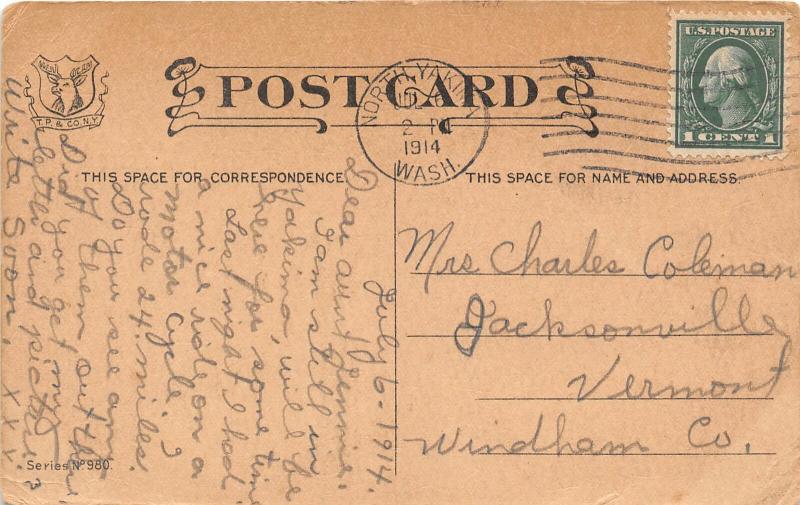 POST CARD
T.P. & CO. N.Y.
NORTH YAKIMA
2 PM
1914
WASH.
U.S. POSTAGE
1 CENT 1
THIS SPACE FOR CORRESPONDENCE
THIS SPACE FOR NAME AND ADDRESS.
July 6-1914.
Dear aunt Jennie.
I am still in
Yakima, will be
here for some time
Last night I had
a nice ride on a
motor cycle, I
rode 24. miles.
Do you see any
of them out there.
Did you get my
letter and picture?
Write Soon. x x x
Mrs Charles Coleman
Jacksonville
Vermont
Windham Co.
Series Nº 980.